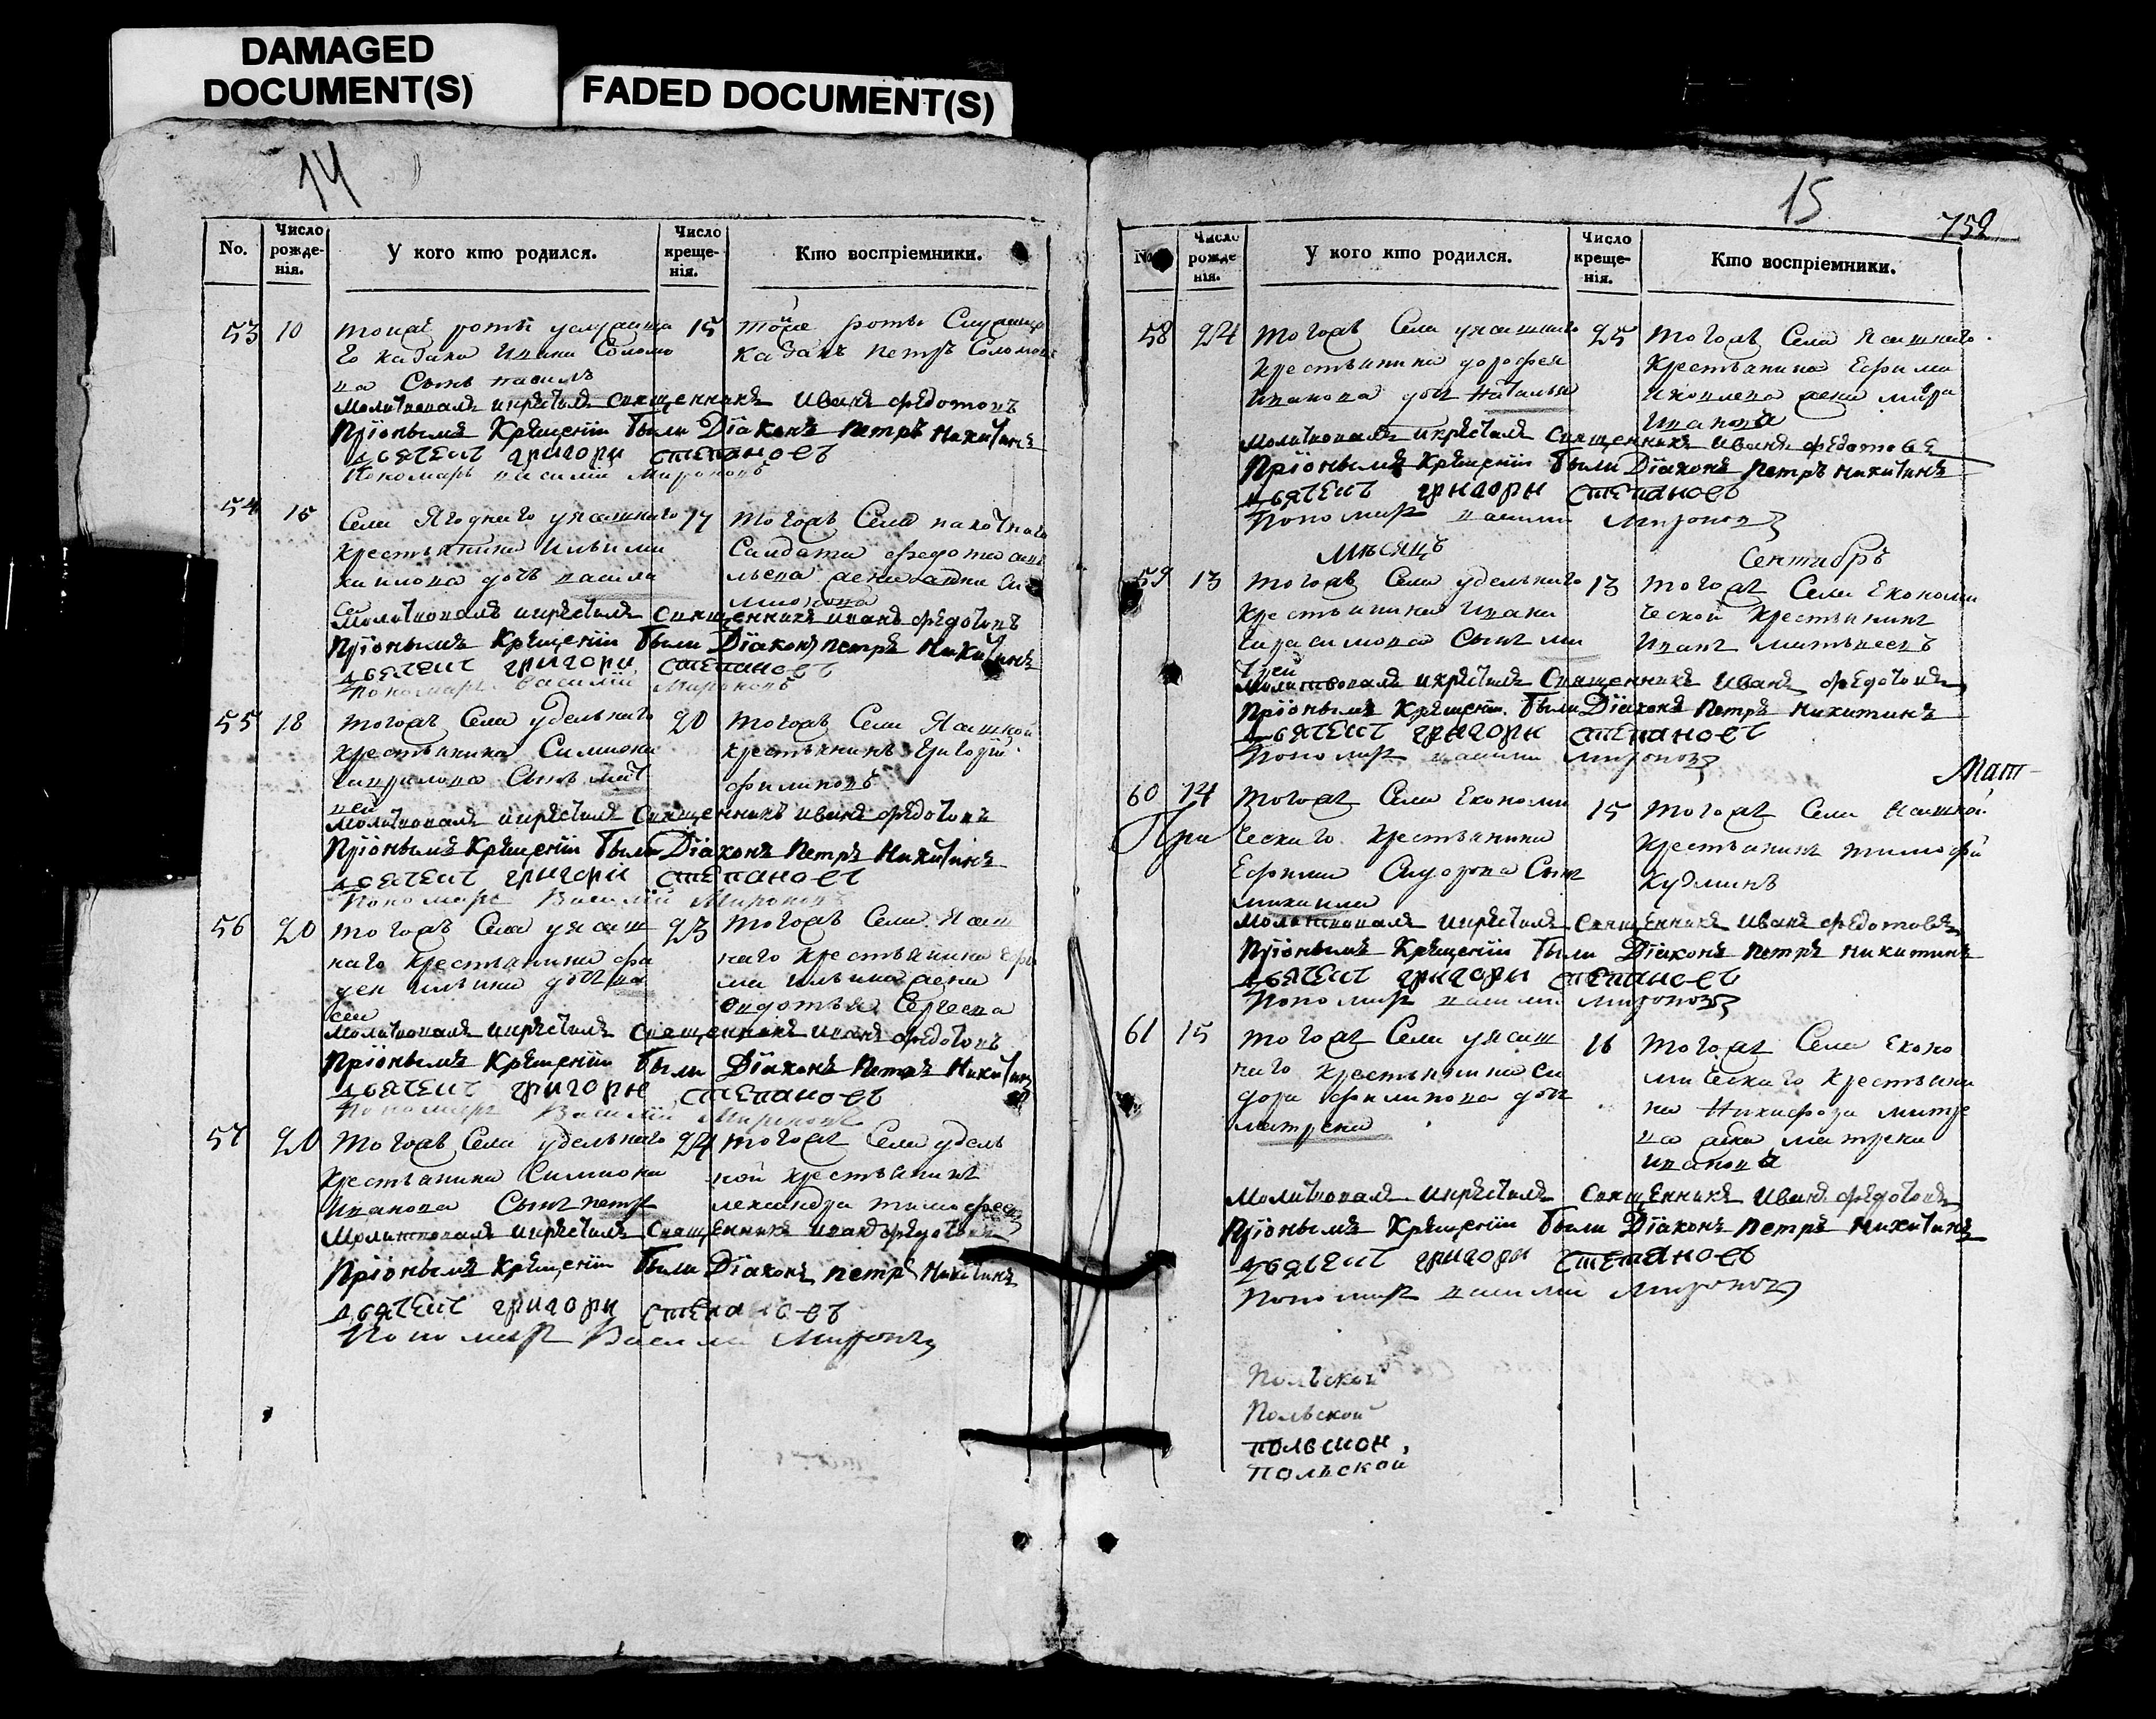 DAMAGED
DOCUMENT(S)
FADED DOCUMENT(S)
14
No.
Число рожде-нія.
У кого кто родился.
Число креще-нія.
Кто воспріемники.
53 10
15 тойже роты
казакъ петръ
Молитвовалъ икрѣстилъ священникъ иванъ федотовъ
Пріоныемъ Крѣщеніи были Діаконъ петръ никитинъ
дьячекъ григори степановъ
Пономарь василій Мироновъ
54 15 Села
крестьянина
дочь
17 тогожъ Села
Салдата
жена анна
Молитвовалъ икрѣстилъ священникъ иванъ федотовъ
Пріоныемъ Крѣщеніи были Діаконъ петръ никитинъ
дьячекъ григори степановъ
Пономарь василій Мироновъ
55 18 тогожъ Села удельнаго
крестьянина Симиона
гаврилова Сынъ мат
вей
20 тогожъ Села
крестьянинъ Григорій
филиповъ
Молитвовалъ икрѣстилъ священникъ иванъ федотовъ
Пріоныемъ Крѣщеніи были Діаконъ петръ никитинъ
дьячекъ григори степановъ
Пономарь Василій Мироновъ
56 20 тогожъ Села
наго крестьянина фа
дея ильина дочь ва
сса
23 тогожъ Села
наго крестьянина ефи
ма ильина жена
овдотья Сергеева
Молитвовалъ икрѣстилъ священникъ иванъ федотовъ
Пріоныемъ Крѣщеніи были Діаконъ петръ никитинъ
дьячекъ григори степановъ
Пономарь Василій Мироновъ
57 20 тогожъ Села удельнаго
крестьянина Симиона
иванова Сынъ петръ
24 тогожъ Села удель
ной крестьянинъ
лександра тимофеевъ
Молитвовалъ икрѣстилъ священникъ иванъ федотовъ
Пріоныемъ Крѣщеніи были Діаконъ петръ никитинъ
дьячекъ григори степановъ
Пономарь Василий Мироновъ
15
752
No.
Число рожде нія.
У кого кто родился.
Число креще-нія.
Кто воспріемники.
58 24 тогожъ Села
крестьянина дорофея
иванова дочь наталья
25 тогожъ Села
крестьянина Ефима
яковлева жена
иванова
Молитвовалъ икрѣстилъ священникъ иванъ федотовъ
Пріоныемъ Крѣщеніи были Діаконъ петръ никитинъ
дьячекъ григори степановъ
Пономарь васили Мироновъ
Мѣсяцъ Сентябрь
59 13 тогожъ Села удельнаго
крестьянина ивана
гарасимова Сынъ
13 тогожъ Села Економи
ческой крестьянинъ
иванъ матвеевъ
Молитвовалъ икрѣстилъ священникъ иванъ федотовъ
Пріоныемъ Крѣщеніи были Діаконъ петръ никитинъ
дьячекъ григори степановъ
Пономарь васили Мироновъ
Мат-
60 14 тогожъ Села Економи
При
ческаго крестьянина
Ефрима Сидорова Сынъ
михаила
15 тогожъ Села
крестьянинъ тимофей
кузминъ
Молитвовалъ икрѣстилъ священникъ иванъ федотовъ
Пріоныемъ Крѣщеніи были Діаконъ петръ никитинъ
дьячекъ григори степановъ
Пономарь васили Мироновъ
61 15 тогожъ Села
наго крестьянина си
дора филипова дочь
матрена
16 тогожъ Села Еконо
мическаго крестьяни
на никифора
жена матрена
иванова
Молитвовалъ икрѣстилъ священникъ иванъ федотовъ
Пріоныемъ Крѣщеніи были Діаконъ петръ никитинъ
дьячекъ григори степановъ
Пономарь васили Мироновъ
Польской
Польской
польской
польской